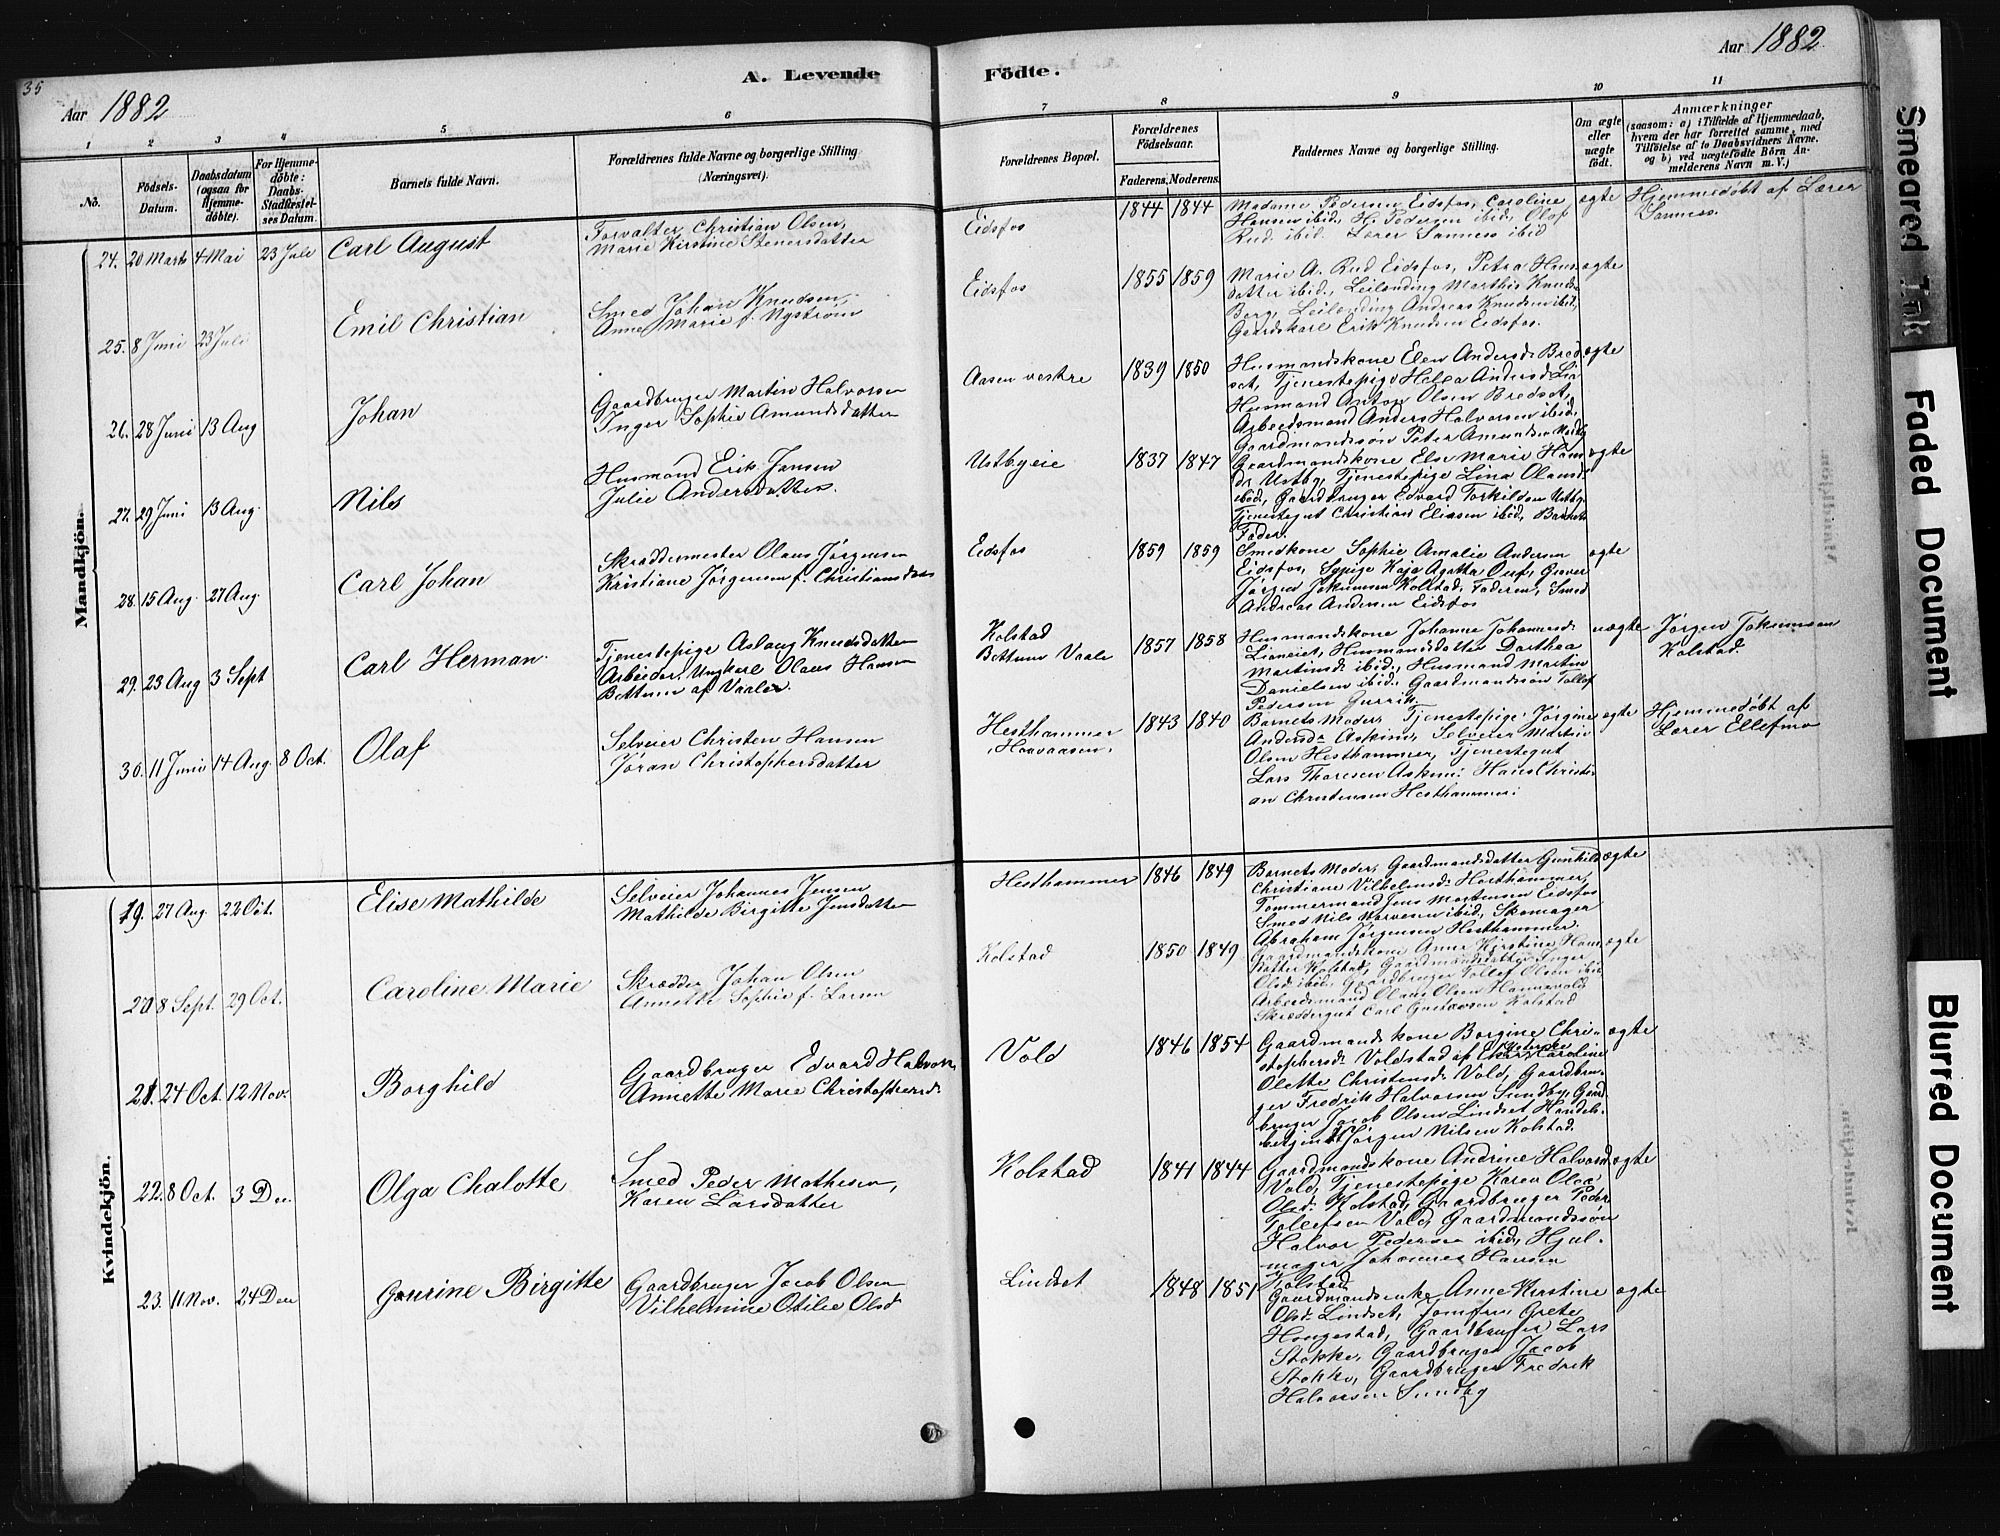 35
A. Levende Födte.
Aar 1882
Aar 1882
1 2 3 4 5 6 7 8 9 10 11
No.
Födsels-Datum.
Daabsdatum (ogsaa for Hjemme-döbte).
For Hjemme-döbte: Daabs-Stadfæstel-ses Datum.
Barnets fulde Navn.
Forældrenes fulde Navne og borgerlige Stilling (Næringsvei).
Forældrenes Bopæl.
Forældrenes Födselsaar.
Faderens. Moderens.
Faddernes Navne og borgerlige Stilling.
Om ægte eller uægte födt.
Anmærkninger
(saasom: a) i Tilfælde af Hjemmedaab, hvem der har forrettet samme, med Tilföielse af to Daabsvidners Navne. og b) ved uægtefödte Börn Anmelderens Navn m. V.)
Mandkjön.
24. 20 Marts 4 Mai 23 Juli Carl August
Forvalter Christian Olsen,
Marie Kirstine Stenersdatter
Eidsfos 1844 1844
Madame Pedersen Eidsfos, Caroline
Hansen ibid, H. Pedersen ibid, Olaf
Rud ibid. Lærer Sannes ibid
ægte
Hjemmedøbt af Lærer
Sannes.
25. 8 Juni 23 Juli Emil Christian
Smed Johan Knudsen,
Anne Marie f. Nystrøm
Eidsfos 1855 1859
Marie A. Rud Eidsfos, Petra Hans-
datter ibid, Leilending Marthis Knuds
Berg, Leilending Andreas Knudsen ibid,
Gaardskarl Erik Knudsen Eidsfos.
ægte
26. 28 Juni 13 Aug Johan
Gaardbruger Martin Halvorsen
Inger Sophie Amundsdatter
Aasen vestre 1839 1850
Husmandskone Elen Andersd. Bred-
set, Tjenestepige Helga Andersd. Lia
Husmand Anton Olsen Bredset,
Arbeidsmand Anders Halvorsen ibid,
Gaardmandssøn Peter Amundsen
ægte
27. 29 Juni 13 Aug. Nils
Husmand Erik Jansen
Julie Andersdatter.
Ustbyeie 1837 1847
Gaardmandskone Else Marie Hans
dr. Ustby, Tjenestepige Lina Olausd
ibid, Gaardbruger Edvard Torkildsen Ustby
Tjenestegut Christian Eliasen ibid, Barnets
Fader.
ægte
28. 15 Aug. 27 Aug. Carl Johan
Skræddermester Olaus Jørgensen
Kristiane Jørgensen f. Christiansdatter
Eidsfos 1859 1859
Smedkone Sophie Amalie Andersen
Eidsfos, Sypige Kaja Agatha Olsf,
Jørgen Jokumsen Kolstad, Faderen, Smed
Andreas Andersen Eidsfos
ægte
29. 23 Aug 3 Sept Carl Herman.
Tjenestepige Aslaug Knudsdatter
Arbeider, Ungkarl Olaus Hansen
Bettum af Vaale.
Kolstad
Bettum Vaale 1857 1858
Husmandskone Johanne Johannesd.
Lianeiet, Husmandsdatter Dorthea
Martinsd. ibid, Husmand Martin
Danielsen ibid, Gaardmandssøn Tollef
Pedersen Gurrik.
uægte
Jørgen Jokumsen
Kolstad.
30. 11 Juni 14 Aug. 8 Oct. Olaf
Selveier Christen Hansen
Jøran Christophersdatter
Hesthammer
Haavaasen, 1843 1840
Barnets Moder, Tjenestepige Jørgine
Andersdr. Askim, Selveier Martin
Olsen Hesthammer, Tjenestegut
Lars Thoresen Askim, Hans Christi-
an Christensen Hesthammer.
ægte
Hjemmedøbt af
Lærer Ellefmo
Kvindekjön.
19. 27 Aug. 22 Oct. Elise Mathilde
Selveier Johannes Jensen
Mathilde Birgitte Jensdatter
Hesthammer 1846 1849
Barnets Moder, Gaardmandsdatter Gunhild
Christiane Vilhelmsd. Hesthammer,
Tømmermand Jens Mortensen Eidsfos
Smed Nils Narvesen ibid, Skomager
Abraham Jørgensen Hesthammer.
ægte
20 8 Sept. 29 Oct. Caroline Marie
Skrædder Johan Olsen
Annette Sophie f. Larsen
Kolstad 1850 1849
Gaardmandskone Anne Kirstine Hans-
datter Kolstad, Gaardmandsdatter Inger
Olsd. ibid, Gaardbruger Tollef Olsen ibid
Arbeidsmand Olaus Olsen Hannevold
Skræddergut Carl Gustavsen Kolstad
ægte
21. 24 Oct. 12 Nov. Borghild
Gaardbruger Edvard Halvors.
Annette Marie Christophersd.
Vold 1846 1854
Gaardmandskone Borgine Chri-
stophersd. Voldstad af Eker, Karoline
Olette Christensd. Vold, Gaardbru-
ger Fredrik Halvorsen Sundby, Gaard-
bruger Jacob Olsen Lindset, Handels-
betjent Jørgen Nilsen Kolstad.
ægte
22. 8 Oct. 3 Dec. Olga Chalotte
Smed Peder Mathesen,
Karen Larsdatter
Kolstad 1841 1844
Gaardmandskone Andrine Halvorsd
Vold, Tjenestepige Karen Olea
Olsd. Kolstad, Gaardbruger Peder
Tollefsen Vold, Gaardmandssøn
Halvor Pedersen ibid, Hjul-
mager Johannes Hansen
Kolstad
ægte
23. 11 Nov. 24 Dec Gaurine Birgitte
Gaardbruger Jacob Olsen
Vilhelmine Otilie Olsd
Lindset 1848 1851
Gaardmandsenke Anne Kirstine
Olsd. Lindset, Jomfru Grete
Hongestad, Gaardbruger Lars
Stokke, Gaardbruger Jacob
Stokke, Gaardbruger Fredrik
Halvorsen Sundby
ægte
Smeared Ink
Faded Document
Blurred Document